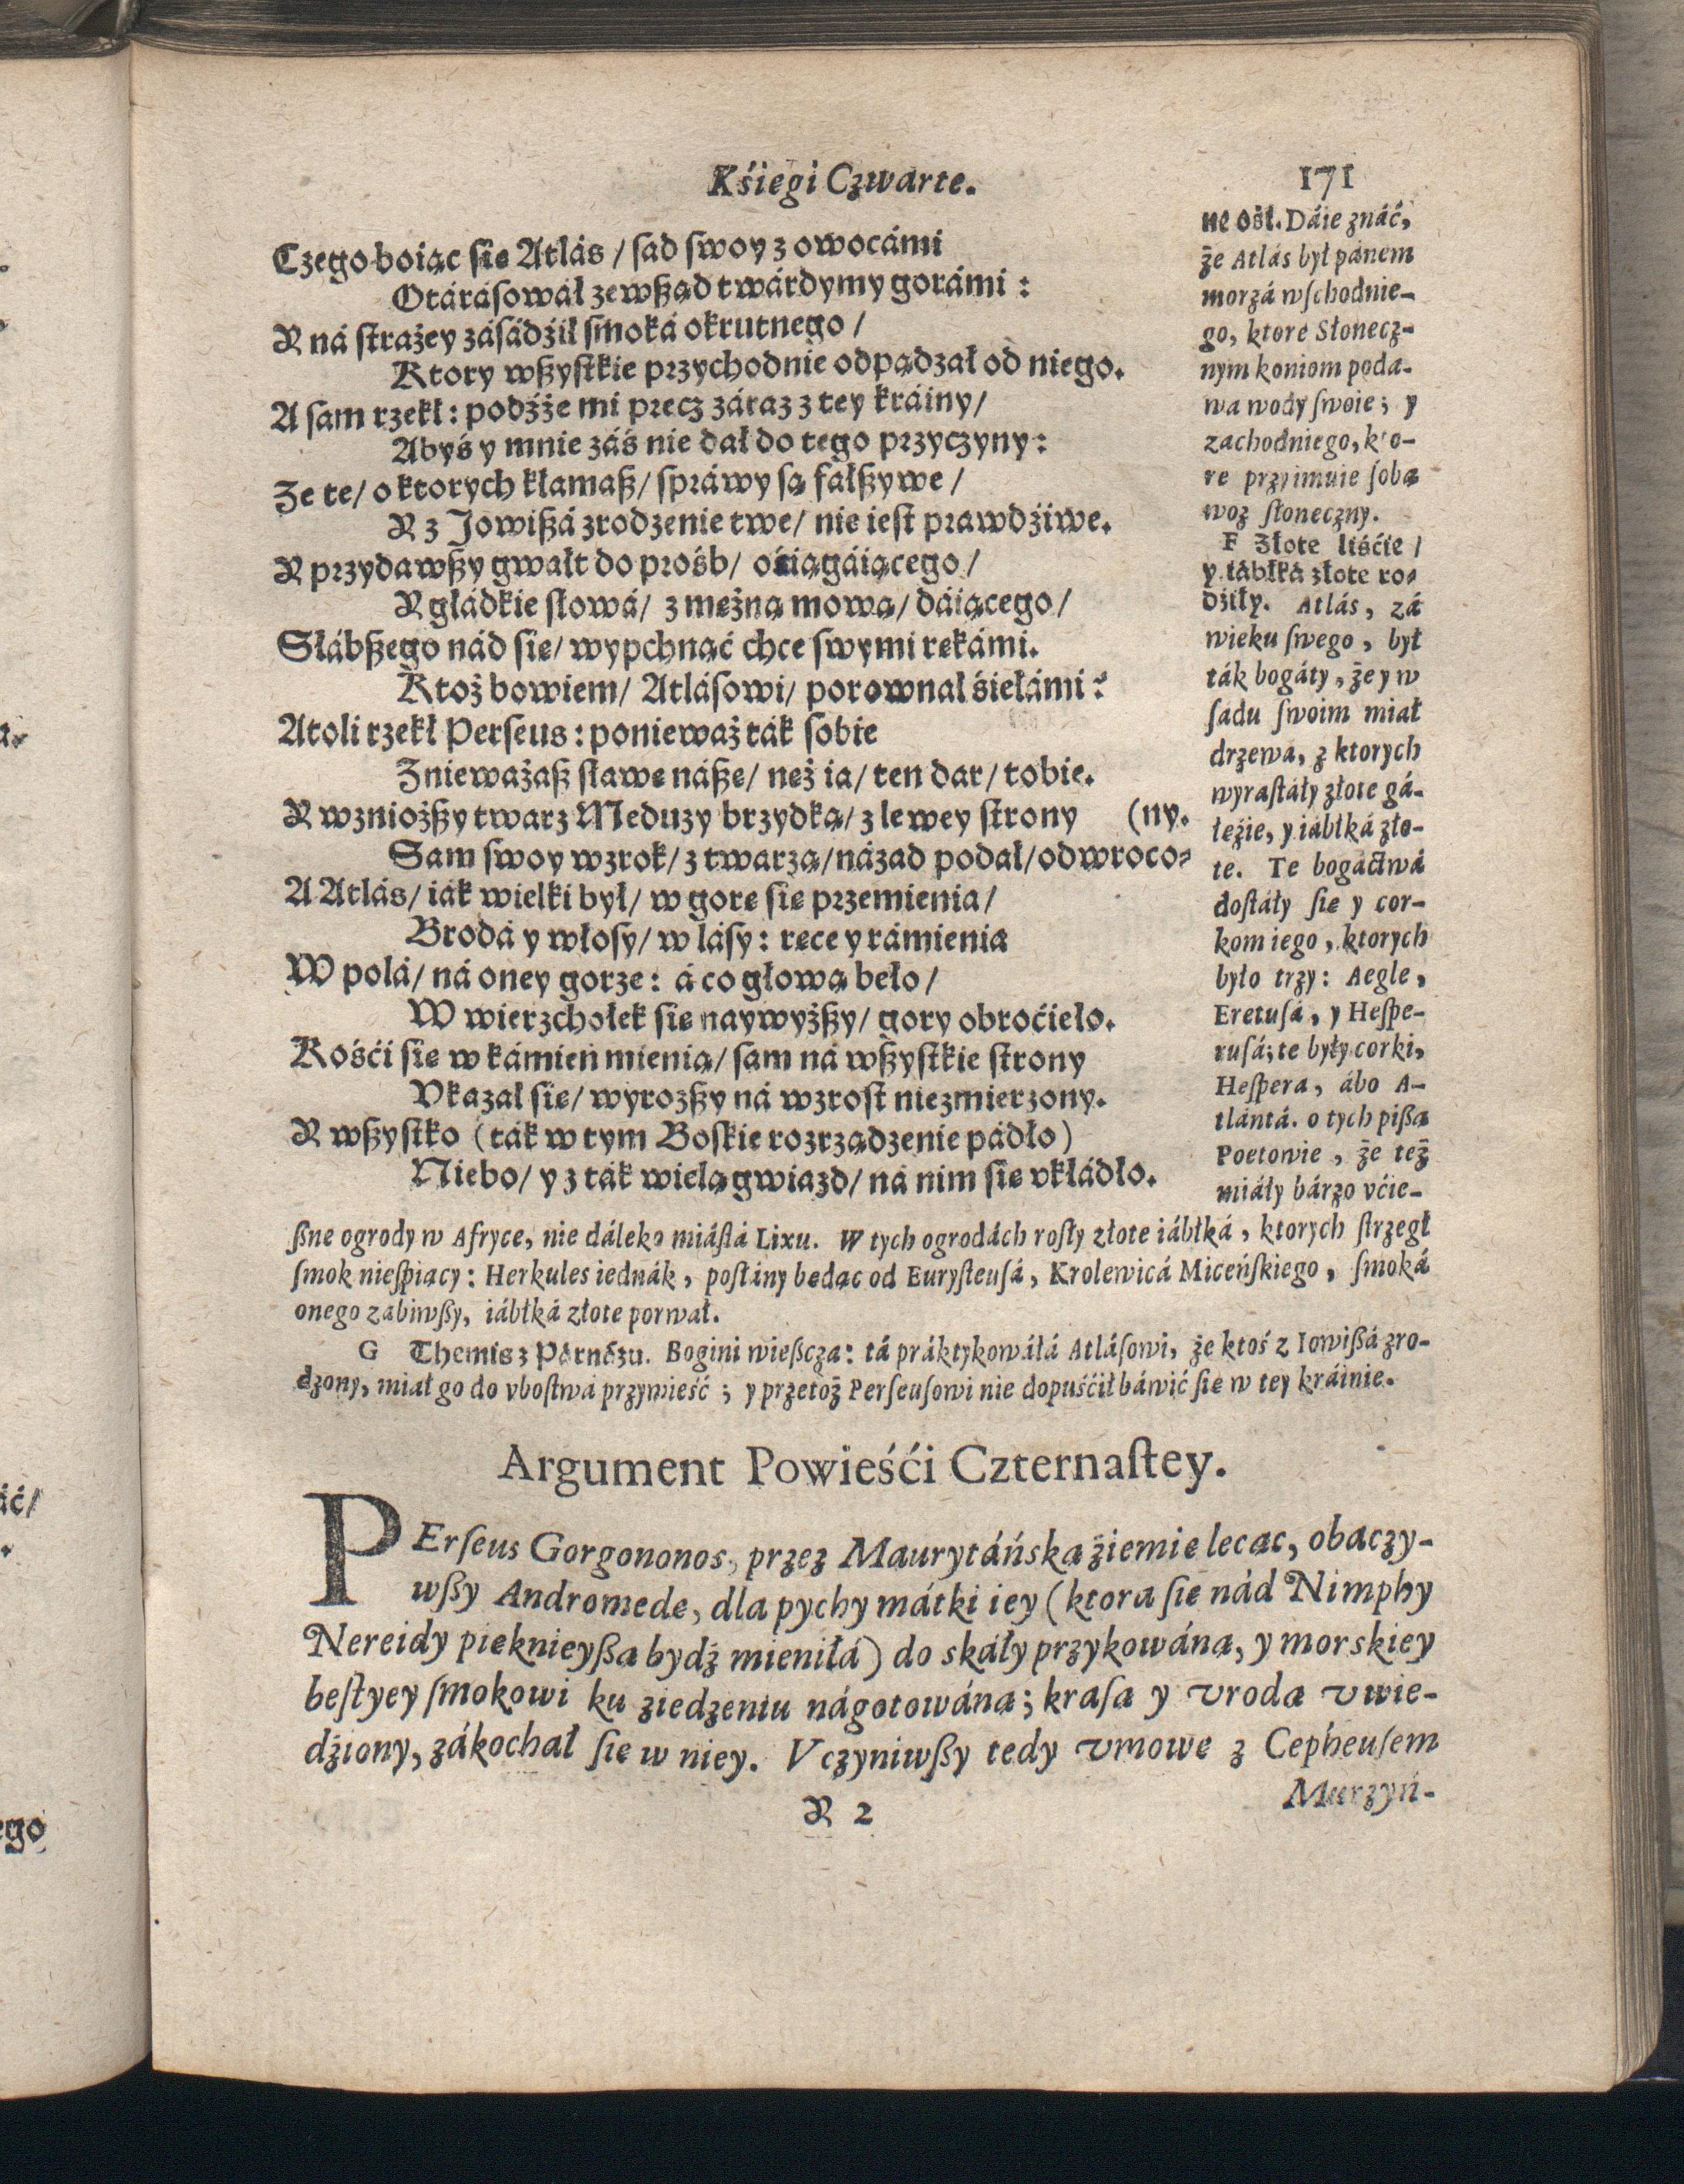 Kśiegi Czwarte.
171
Czego boiąc się Atlás / sad swoy z owocámi
Otárásował zewßąd twárdymy gorámi :
Y ná strażey zásádźił smoká okrutnego /
Ktory wßystkie przychodnie odpądzał od niego.
A sam rzekł : podźże mi precz záraz z tey kráiny /
Abyś y mnie záś nie dał do tego przyczyny :
Że te / o ktorych kłamaß / spráwy są fałßywe /
Y z Jowißá zrodzenie twe / nie iest prawdźiwe.
Y przydawßy gwałt do prośb / ośiągáiącego /
Y głádkie słowá / z mężną mową / dáiącego /
Słábßego nád się / wypchnąć chce swymi rękámi.
Ktoż bowiem / Atlásowi / porownał śiełámi :
Atoli rzekł Perseus : ponieważ ták sobie
Znieważaß sławę náßę / neż ia / ten dar / tobie.
Y wzniożßy twarz Meduzy brzydką / z lewey strony (ny.
Sam swoy wzrok / z twarzą / názad podał / odwroco-
A Atlás / iák wielki był / w gorę się przemienia /
Brodá y włosy / w lásy : ręce y rámienia
W polá / ná oney gorze : á co głową beło /
W wierzchołek się naywyżßy / gory obroćieło.
Kośći się w kámień mienią / sam ná wßystkie strony
Vkazał się / wyrozßy ná wzrost niezmierzony.
Y wßystko (ták w tym Boskie rozrządzenie pádło)
Niebo / y z ták wielą gwiazd / ná nim się vkłádło.
ne ośł. Dáie znáć,
że Atlás był pánem
morzá wſchodnie-
go, ktore Słonecz-
nym koniom poda-
wa wody ſwoie; y
zachodniego, kto-
re przyimuie ſobą
woz ſłoneczny.
F Złote liśćie /
y iábłká złote ro-
dźiły. Atlás, zá
wieku ſwego, był
ták bogáty, że y w
ſadu ſwoim miał
drzewa, z ktorych
wyraſtáły złote gá-
łęźie, y iábłká zło-
te. Te bogáctwá
doſtáły ſię y cor-
kom iego, ktorych
było trzy: Aegle,
Eretuſá, y Heſpe-
ruſá; te były corki,
Heſpera, ábo A-
tlántá. o tych pißą
Poetowie, że też
miáły bárzo vćie-
ßne ogrody w Afryce, nie dáleko miáſtá Lixu. W tych ogrodách roſły złote iábłká, ktorych ſtrzegł
ſmok nieſpiący: Herkules iednák, poſłány będąc od Euryſteuſá, Krolewicá Miceńſkiego, ſmoká
onego zabiwßy, iábłká złote porwał.
G Themis z Párnázu. Bogini wießcza: tá práktykowáłá Atláſowi, że ktoś z Iowißá zro-
dzony, miał go do vboſtwá przywieść; y przetoż Perſeuſowi nie dopuśćił báwić ſię w tey kráinie.
Argument Powieśći Czternaſtey.
PErſeus Gorgononos, przez Maurytáńską źiemię lecąc, obaczy-
wßy Andromedę, dla pychy mátki iey (ktora ſię nád Nimphy
Nereidy pięknieyßą bydź mieniłá) do skáły przykowáną, y morskiey
beſtyey ſmokowi ku ziedzeniu nágotowáną; kraſą y vrodą vwie-
dźiony, zákochał ſię w niey. Vczyniwßy tedy vmowę z Cepheuſem
Y 2
Murzyń-